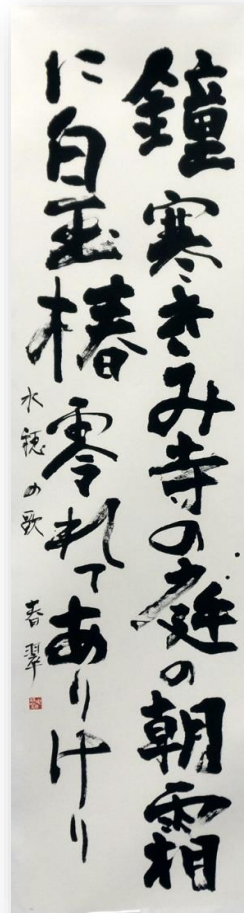 鐘寒きみ寺の庭の朝霜
に白玉椿零れてありけり
水穂の歌 春翠